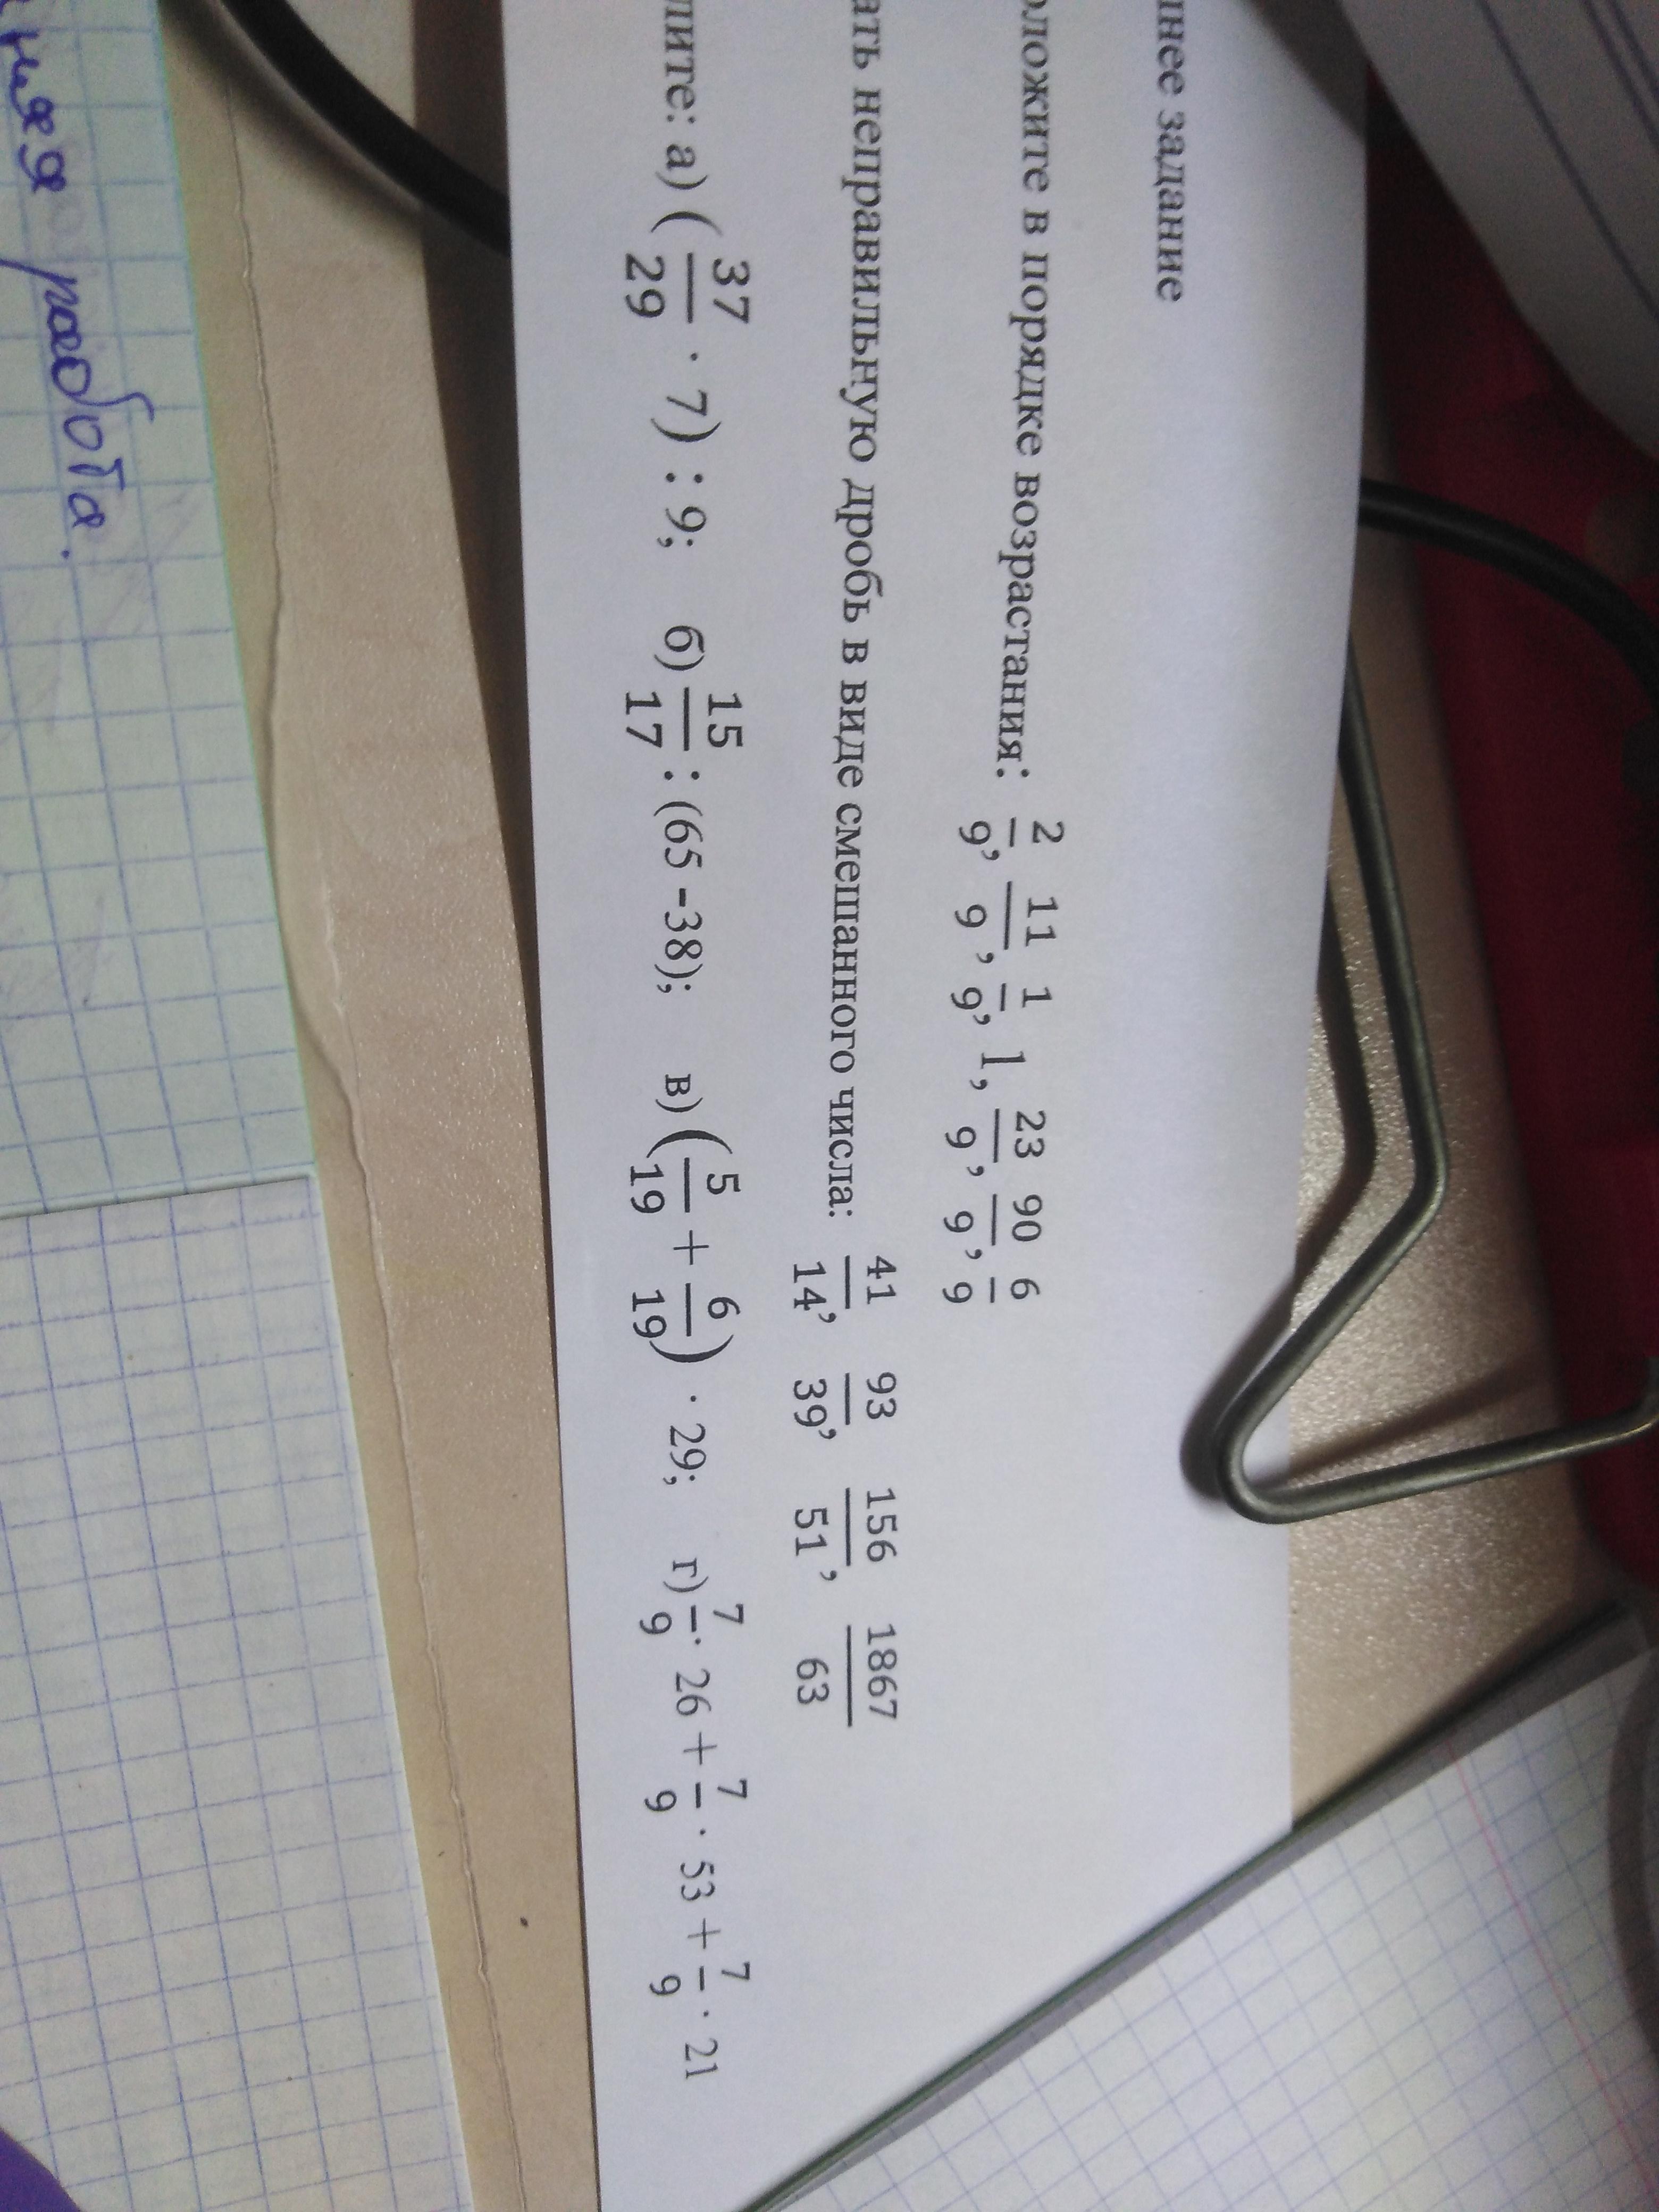 задание
в порядке возрастания: 2/9, 11/9, 1/9, 1, 23/9, 90/9, 6/9
неправильную дробь в виде смешанного числа: 41/14, 93/39, 156/51, 1867/63
а) (37/29 · 7) : 9; б) 15/17 : (65 -38); в) (5/19 + 6/19) · 29; г) 7/9 · 26 + 7/9 · 53 + 7/9 · 21
работа.